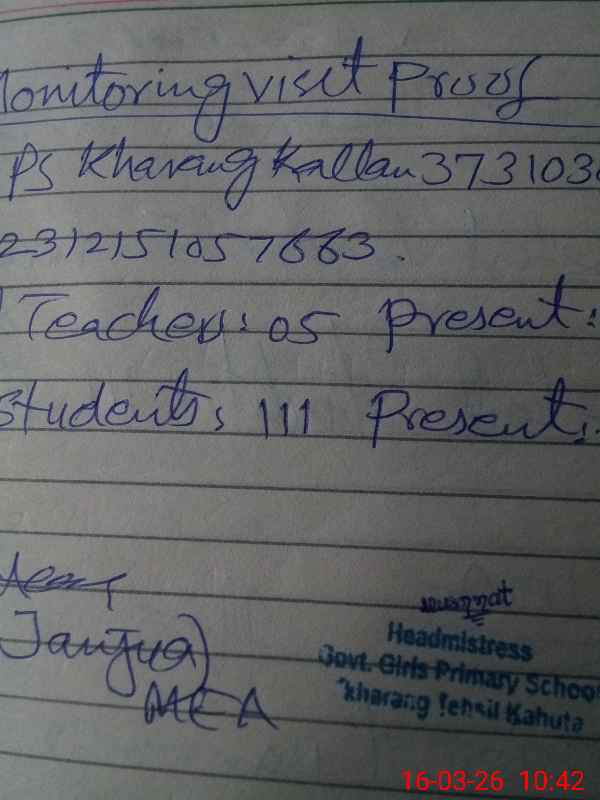 Monitoring visit Proof
PS Kharang Kallan 373103
2312151057663.
Teachers: 05 Present:
Students: 111 Present:
Janjua)
MEA
Headmistress
Govt. Girls Primary School
kharang Tehsil Kahuta
16-03-26 10:42